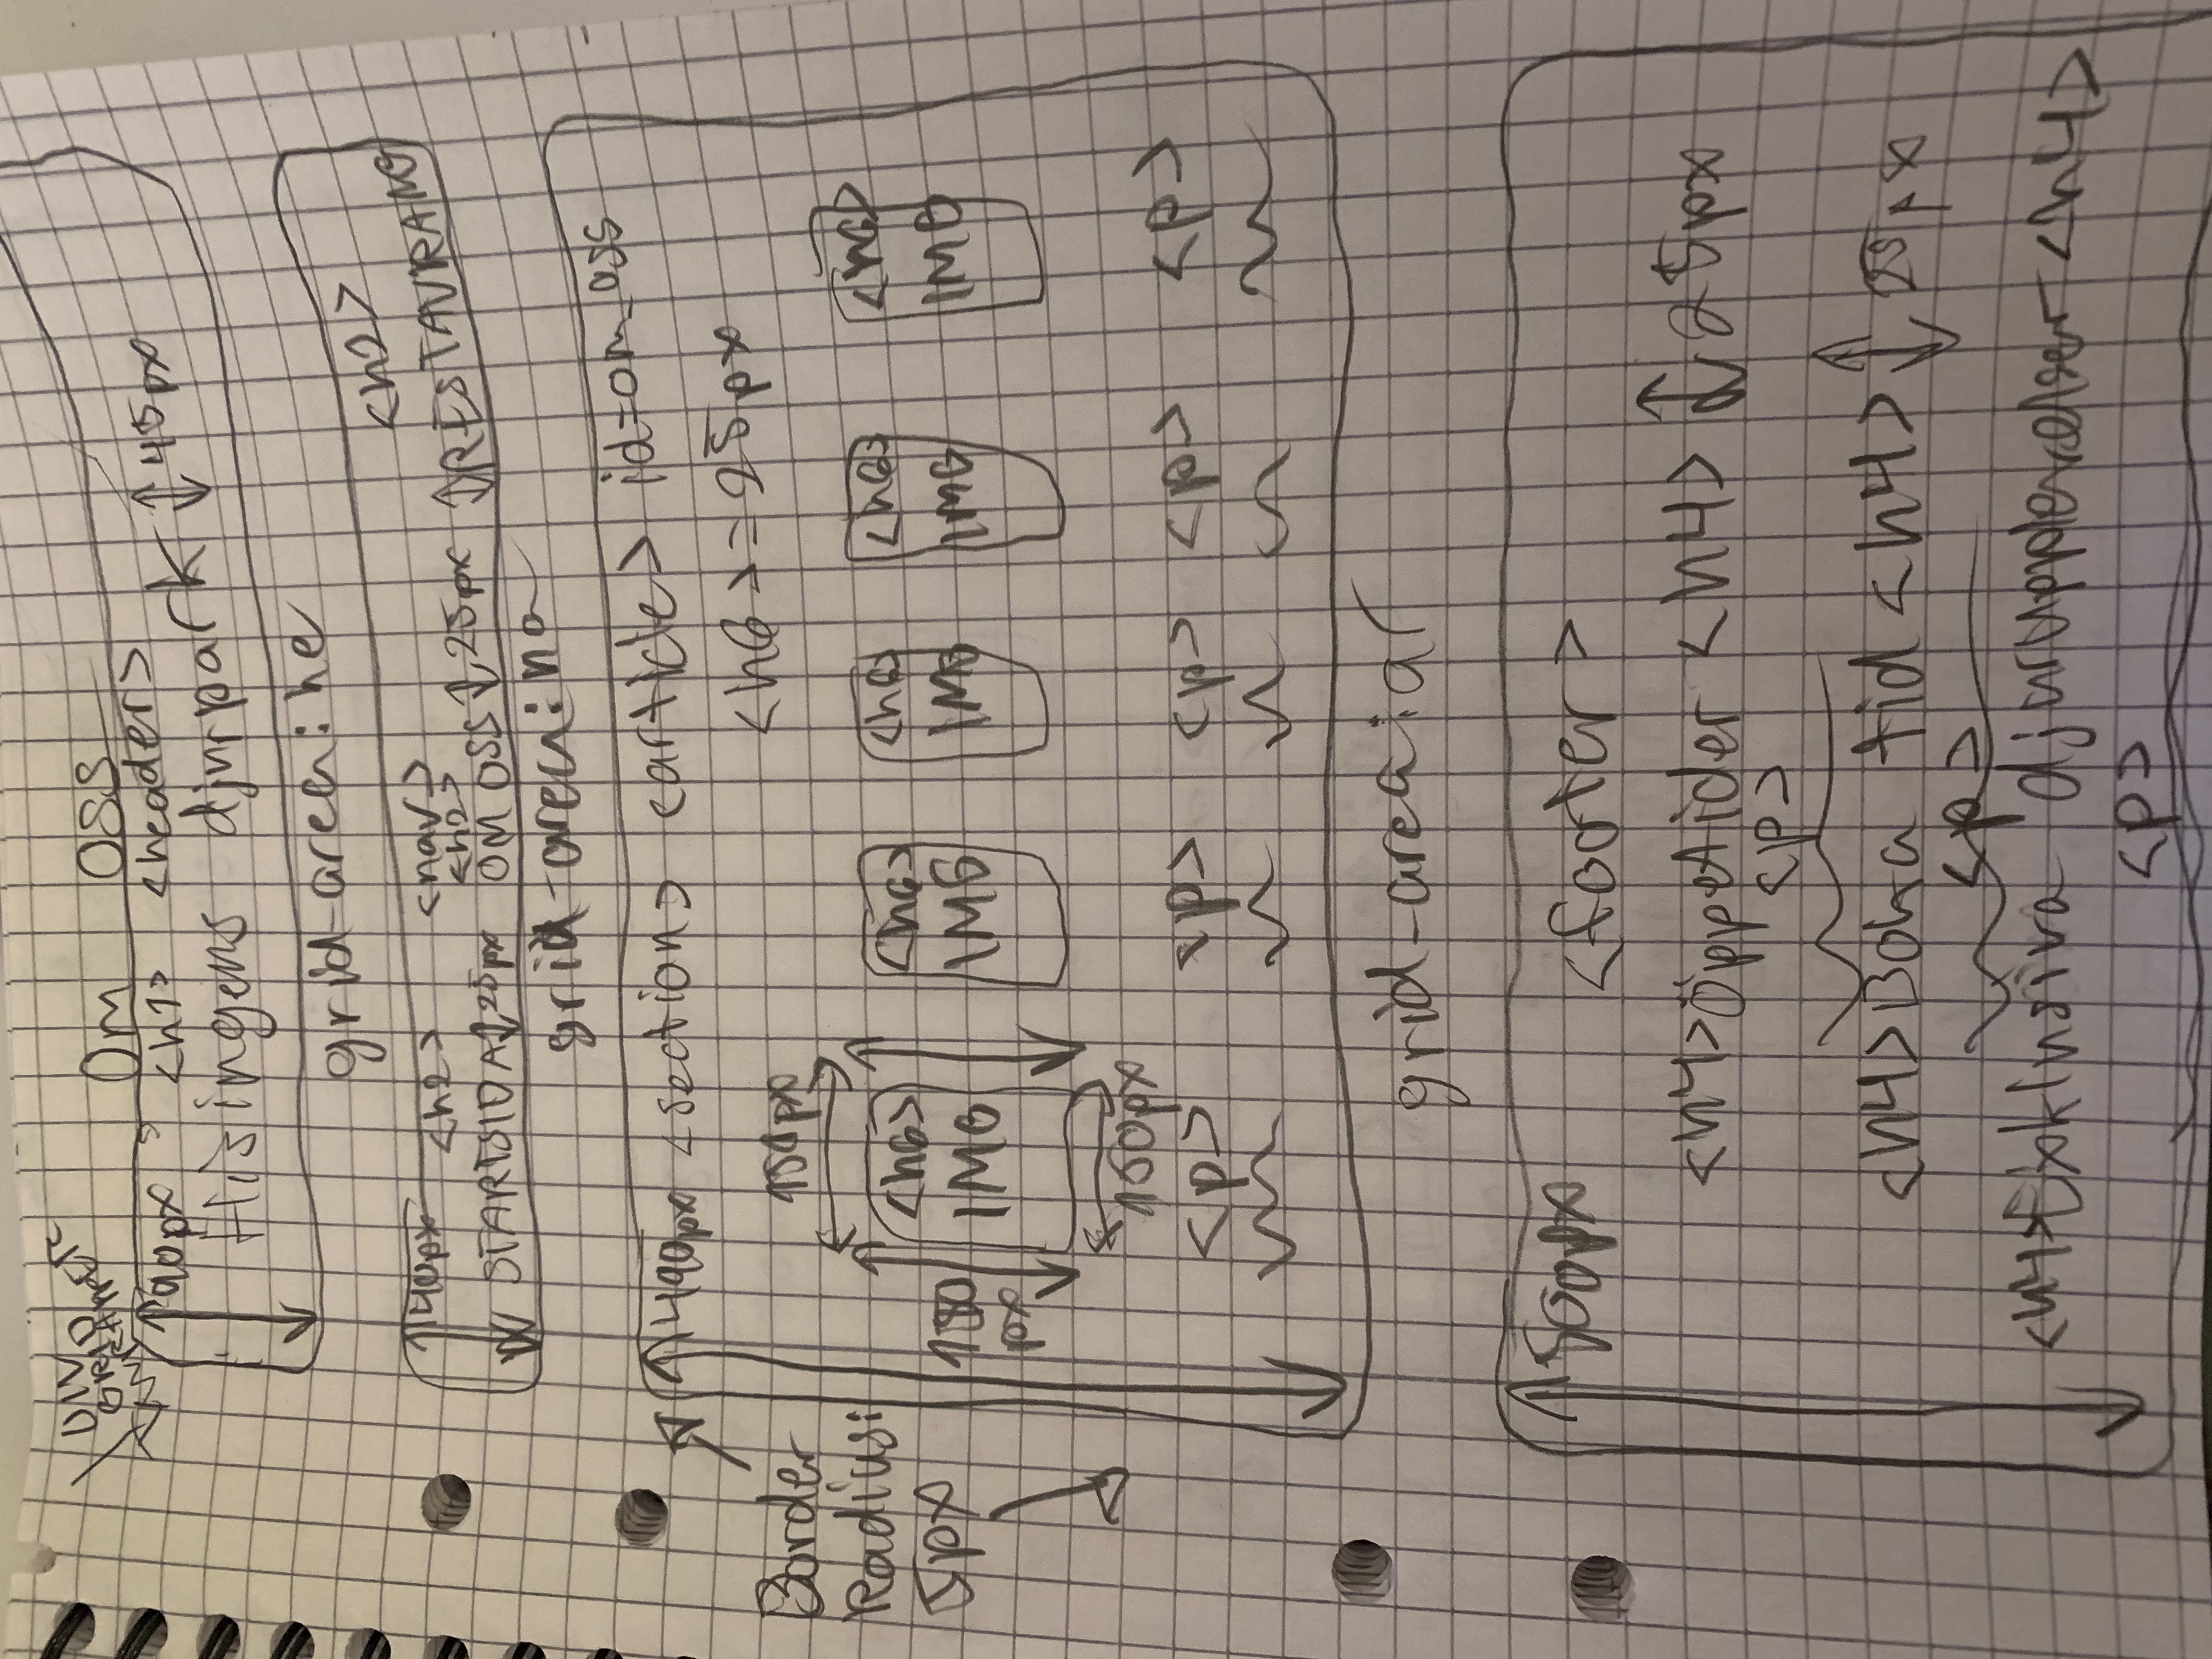 DIV
GRID
WRAPPER
Om OSS
90px <h1> <header>
Hisingens djurpark 45px
grid-area: he
<h2>
40px <h2> <nav>
<h2>
STARTSIDA 25px OM OSS 25px RESTAURANG
grid-area: na
490px <section> <article> id=om_oss
<h6> = 25px
Border
Radius:
5px
150px
<h6> <h6> <h6> <h6> <h6>
IMG IMG IMG IMG IMG
150
px
150px
<p> <p> <p> <p> <p>
grid-area: ar
500px <footer>
<h4> Öppetider <h4> 25px
<p>
<h4> Boka tid <h4> 25px
<p>
<h4> Exklusiva djurupplevelser <h4>
<p>